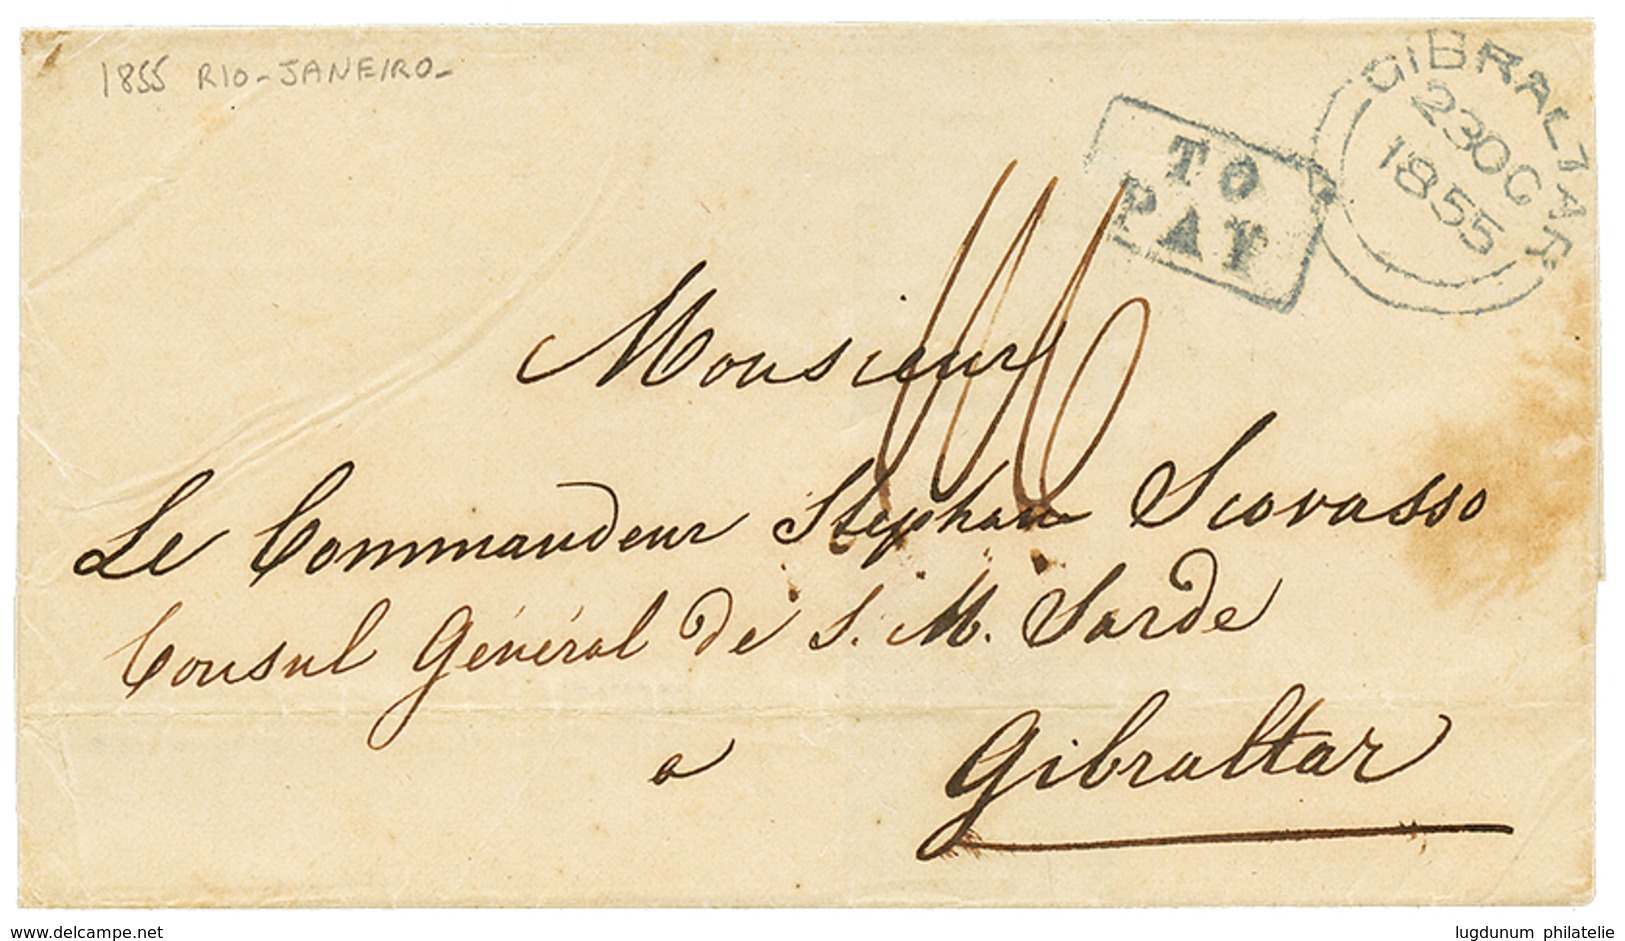 1855 RIO-JANEIRO-
GIBRALTAR
23OC
1855
TO
PAY
Monsieur
Le Commandeur Stephan Scovasso
Consul Général de S. M. Sarde
a Gibraltar
delcampe.net
lugdunum philatelie